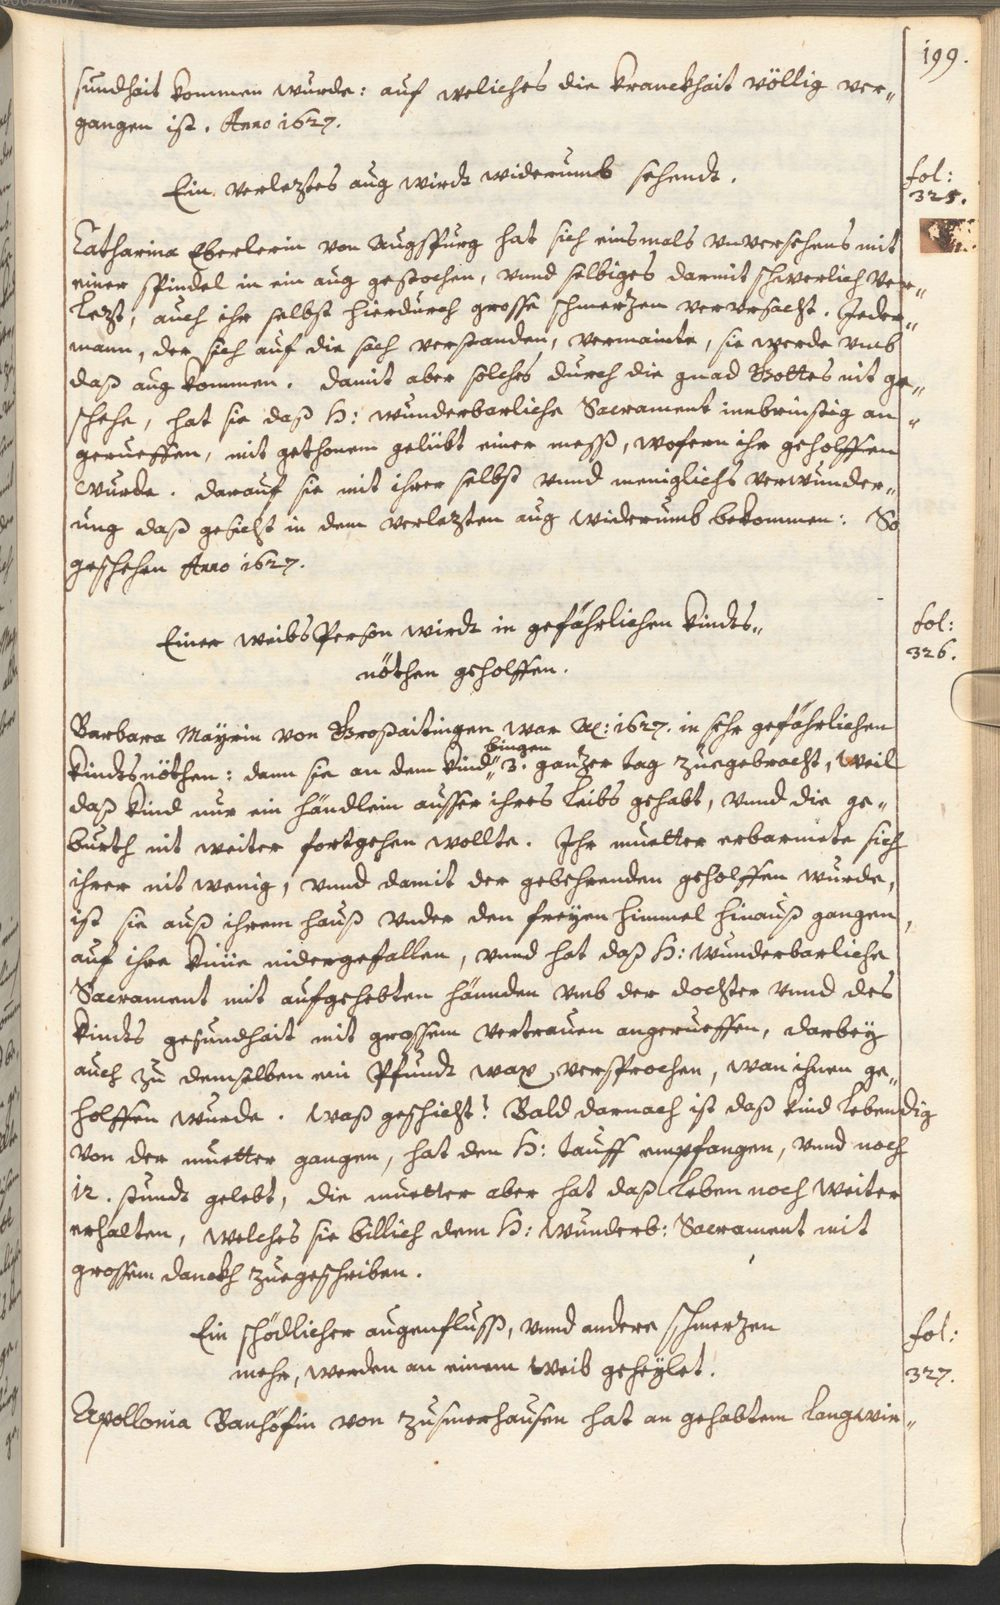 199.
sundhait kommen wurde: auf weliches die kranckhait völlig ver„
gangen ist. Anno 1627.
Ein verleztes aug wirdt widerumb sehendt.
fol:
325.
Catharina Eberlerin von Augspurg hat sich einsmals vnversehens mit
einer spindel in ein aug gestochen, vnnd selbiges darmit schwerlich ver„
lezt, auch ihr selbst hierdurch grosse schmertzen verursacht. Jeder„
mann, der sich auf die sach verstanden, vermainte, sie werde vmb
daß aug kommen. damit aber solches durch die gnad Gottes nit ge„
schehe, hat sie daß H: wunderbarliche Sacrament inbrünstig an„
gerueffen, mit gethonem gelübt einer mess, wofern ihr geholffen
wurde. darauf sie mit ihrer selbst vnnd meniglichs verwunder„
ung daß gesicht in dem verlezten aug widerumb bekommen: So
geschehen Anno 1627.
Einer weibsPerson wirdt in gefährlichen kindts„
nöthen geholffen.
fol:
326.
Barbara Mayrin von Großaitingen war Ao: 1627. in sehr gefährlichen
kindtsnöthen: dann sie an dem kind„ 3. gantzer tag zuegebracht, weil
daß kind nur ein händlein ausser ihres Leibs gehabt, vnnd die ge„
burth nit weiter fortgehen wollte. Ihr muetter erbarmete sich
ihrer nit wenig, vnnd damit der gebehrenden geholffen wurde,
ist sie auß ihrem hauß vnder den freyen himmel hinauß gangen,
auf ihre kniie nidergefallen, vnnd hat daß H: wunderbarliche
Sacrament mit aufgehebten hännden vmb der dochter vnnd des
kindts gesundhait mit grossem vertrauen angerueffen, darbey
auch zu demselben ein Pfundt wax versprochen, wan ihnen ge„
holffen wurde. waß geschicht? Bald darnach ist daß kind lebendig
von der muetter gangen, hat den H: tauff empfangen, vnnd noch
12. stundt gelebt, die muetter aber hat daß Leben noch weiter
erhalten, welches sie billich dem H: wunderb: Sacrament mit
grossem danckh zuegeschriben.
Ein schödlicher augenfluss, vnnd andere schmertzen
mehr, werden an einem weib geheylet.
fol:
327.
Apollonia Banhöfin von Zusmerhausen hat an gehabtem langwir„